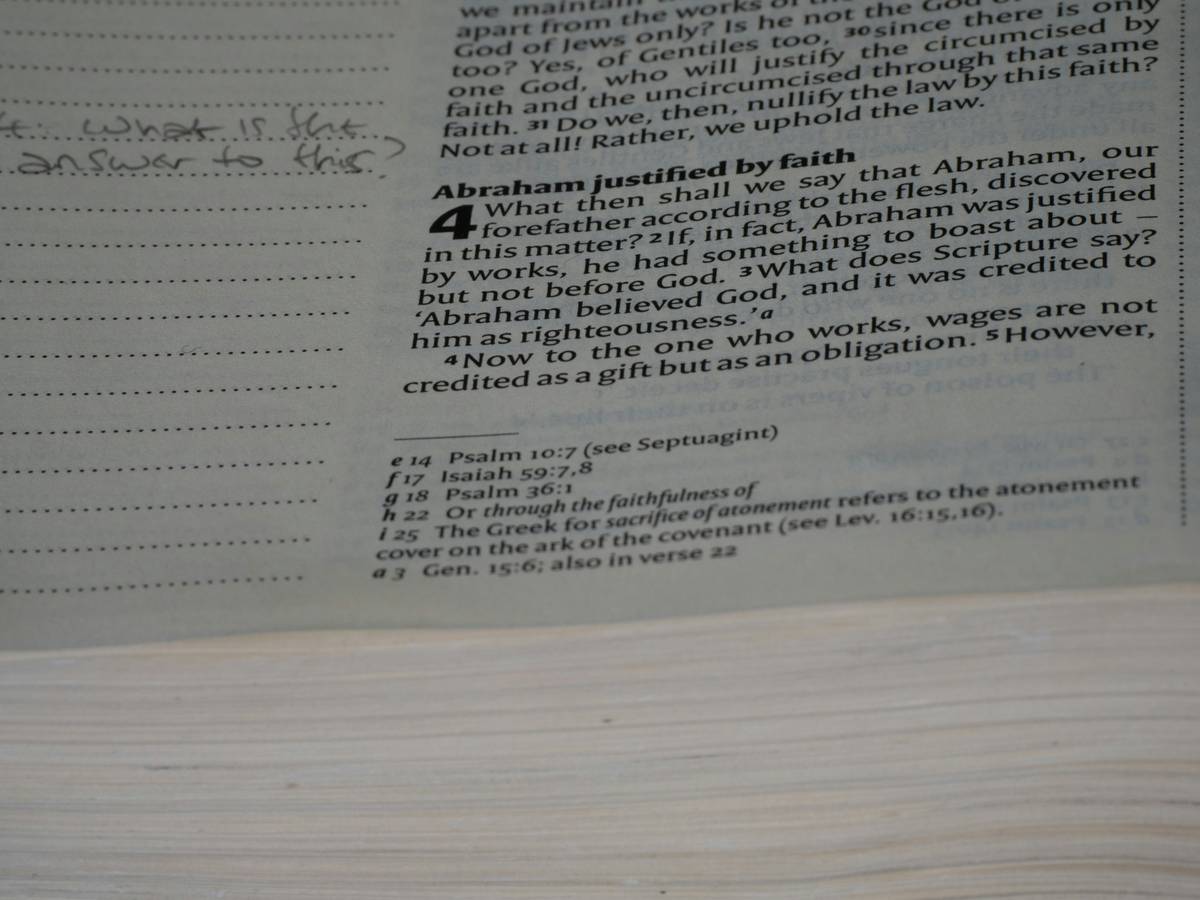 we maintain
apart from the works of the
God of Jews only? Is he not the God of
too? Yes, of Gentiles too, 30 since there is only
one God, who will justify the circumcised by
faith and the uncircumcised through that same
faith. 31 Do we, then, nullify the law by this faith?
Not at all! Rather, we uphold the law.
what is the
answer to this?
Abraham justified by faith
4 What then shall we say that Abraham, our
forefather according to the flesh, discovered
in this matter? 2 If, in fact, Abraham was justified
by works, he had something to boast about –
but not before God. 3 What does Scripture say?
‘Abraham believed God, and it was credited to
him as righteousness.’ a
4 Now to the one who works, wages are not
credited as a gift but as an obligation. 5 However,
e 14 Psalm 10:7 (see Septuagint)
f 17 Isaiah 59:7,8
g 18 Psalm 36:1
h 22 Or through the faithfulness of
i 25 The Greek for sacrifice of atonement refers to the atonement
cover on the ark of the covenant (see Lev. 16:15,16).
a 3 Gen. 15:6; also in verse 22